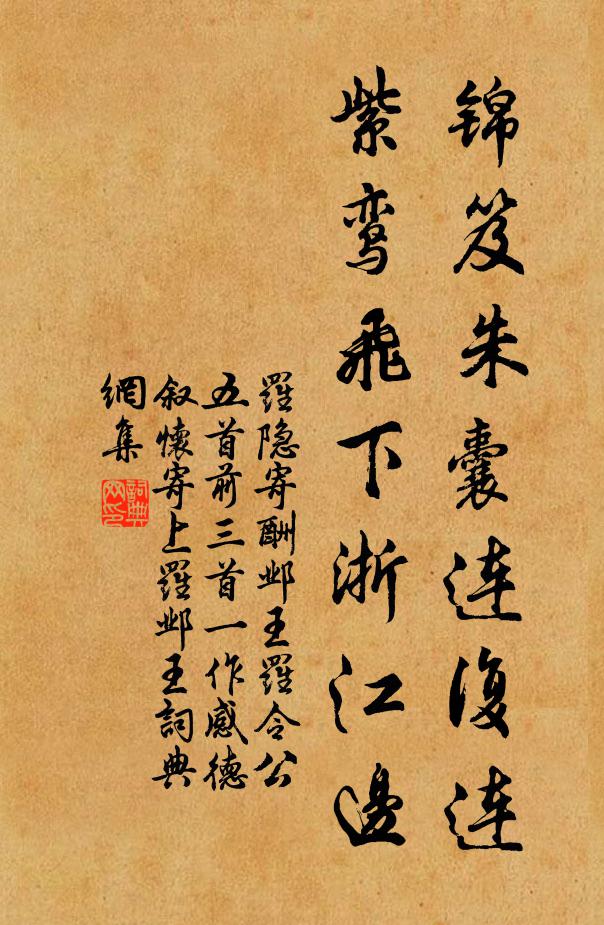 锦笈朱囊連復連
紫鸾飛下浙江邊
羅隐寄酬邺王羅令公
五首前三首一作感德
叙懷寄上羅邺王詞典
網集
詞典
网印